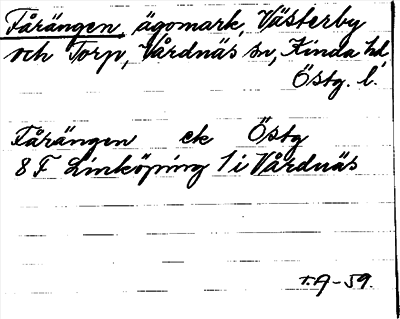 Fårängen, ägomark, Västerby
och Torp, Vårdnäs sn, Kinda hd,
Östg. l.
Fårängen ek Östg
8 F Linköping 1 i Vårdnäs
T.A-59.